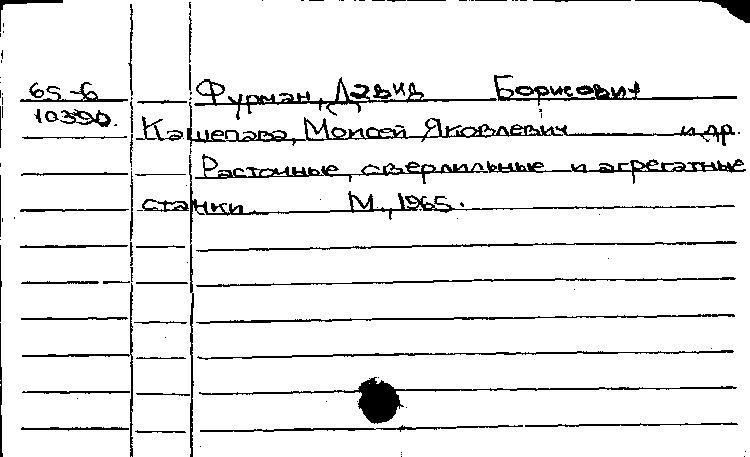 65-6 Фурман, Давид Борисович
10390. Кашепава, Моисей Яковлевич и др.
Расточные, сверлильные и агрегатные
станки М., 1965.